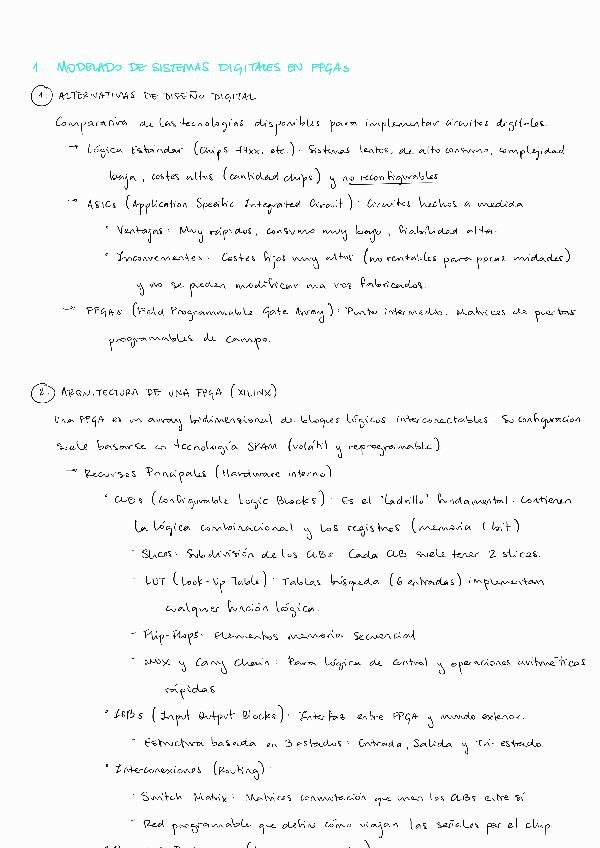 1. MODELADO DE SISTEMAS DIGITALES EN FPGAs
1. ALTERNATIVAS DE DISEÑO DIGITAL
Comparativa de las tecnologías disponibles para implementar circuitos digitales.
→ Lógica Estándar (Chips 74xx, etc.): Sistemas lentos, de alto consumo, complejidad
baja, costes altos (cantidad chips) y no reconfigurables
→ ASICs (Application Specific Integrated Circuit): Circuitos hechos a medida
• Ventajas: Muy rápidos, consumo muy bajo, fiabilidad alta.
• Inconvenientes: Costes fijos muy altos (no rentables para pocas unidades)
y no se pueden modificar una vez fabricados.
→ FPGAs (Field Programmable Gate Array): Punto intermedio. Matrices de puertas
programables de campo.
2. ARQUITECTURA DE UNA FPGA (XILINX)
Una FPGA es un array bidimensional de bloques lógicos interconectables. Su configuración
suele basarse en tecnología SRAM (volátil y reprogramable)
→ Recursos Principales (Hardware interno)
• CLBs (Configurable Logic Blocks): Es el "ladrillo" fundamental. Contienen
la lógica combinacional y los registros (memoria 1 bit)
- Slices: Subdivisión de los CLBs. Cada CLB suele tener 2 slices.
- LUT (Look-Up Table): Tablas búsqueda (6 entradas) implementan
cualquier función lógica.
- Flip-Flops: Elementos memoria secuencial
- MUX y Carry Chain: Para lógica de control y operaciones aritméticas
rápidas
• IOBs (Input Output Blocks): Interfaz entre FPGA y mundo exterior.
- Estructura basada en 3 estados: Entrada, Salida y Tri-estado.
• Interconexiones (Routing):
- Switch Matrix: Matrices conmutación que unen los CLBs entre sí
- Red programable que define cómo viajan las señales por el chip